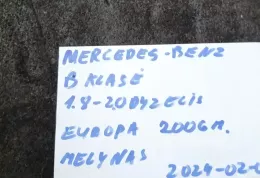 MERCEDES-BENZ
B KLASĖ
1.8-2.0DYZELIS
EUROPA 2006 m.
MELYNAS
2024-02-0